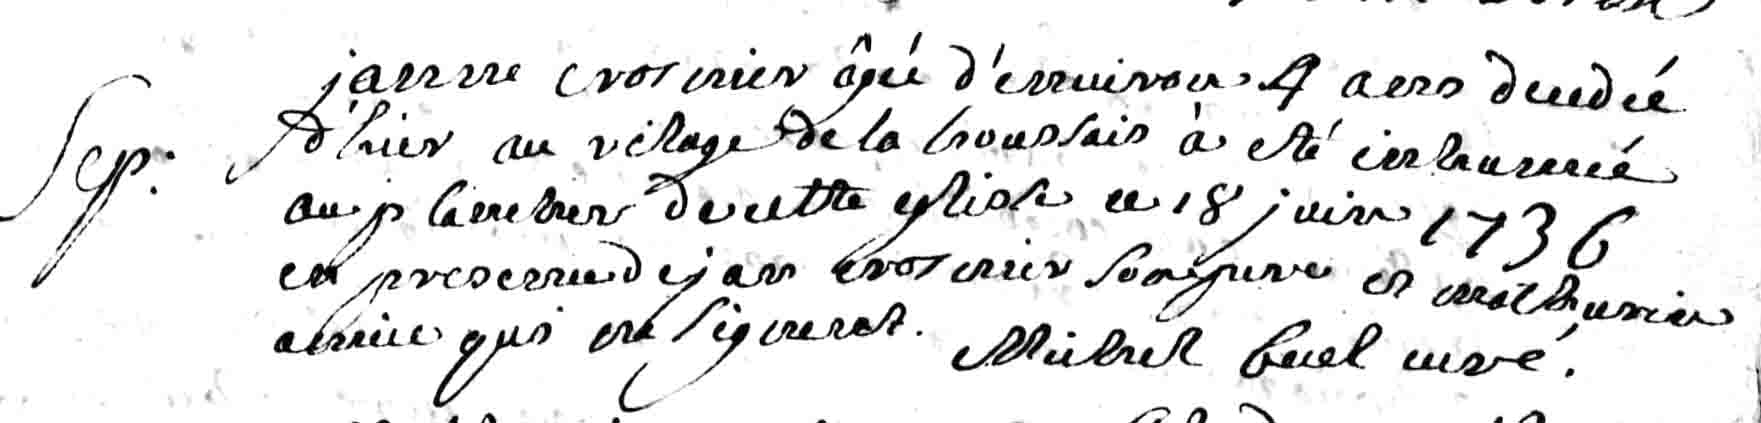 Sep:
janne crosnier âgée d'environ 4 ans decedée
d'hier au vilage de la houssais à eté inhumée
au placitre de cette eglise ce 18 juin 1736
en presence de jan crosnier son pere et mathurin
qui ne signent. Michel curé.